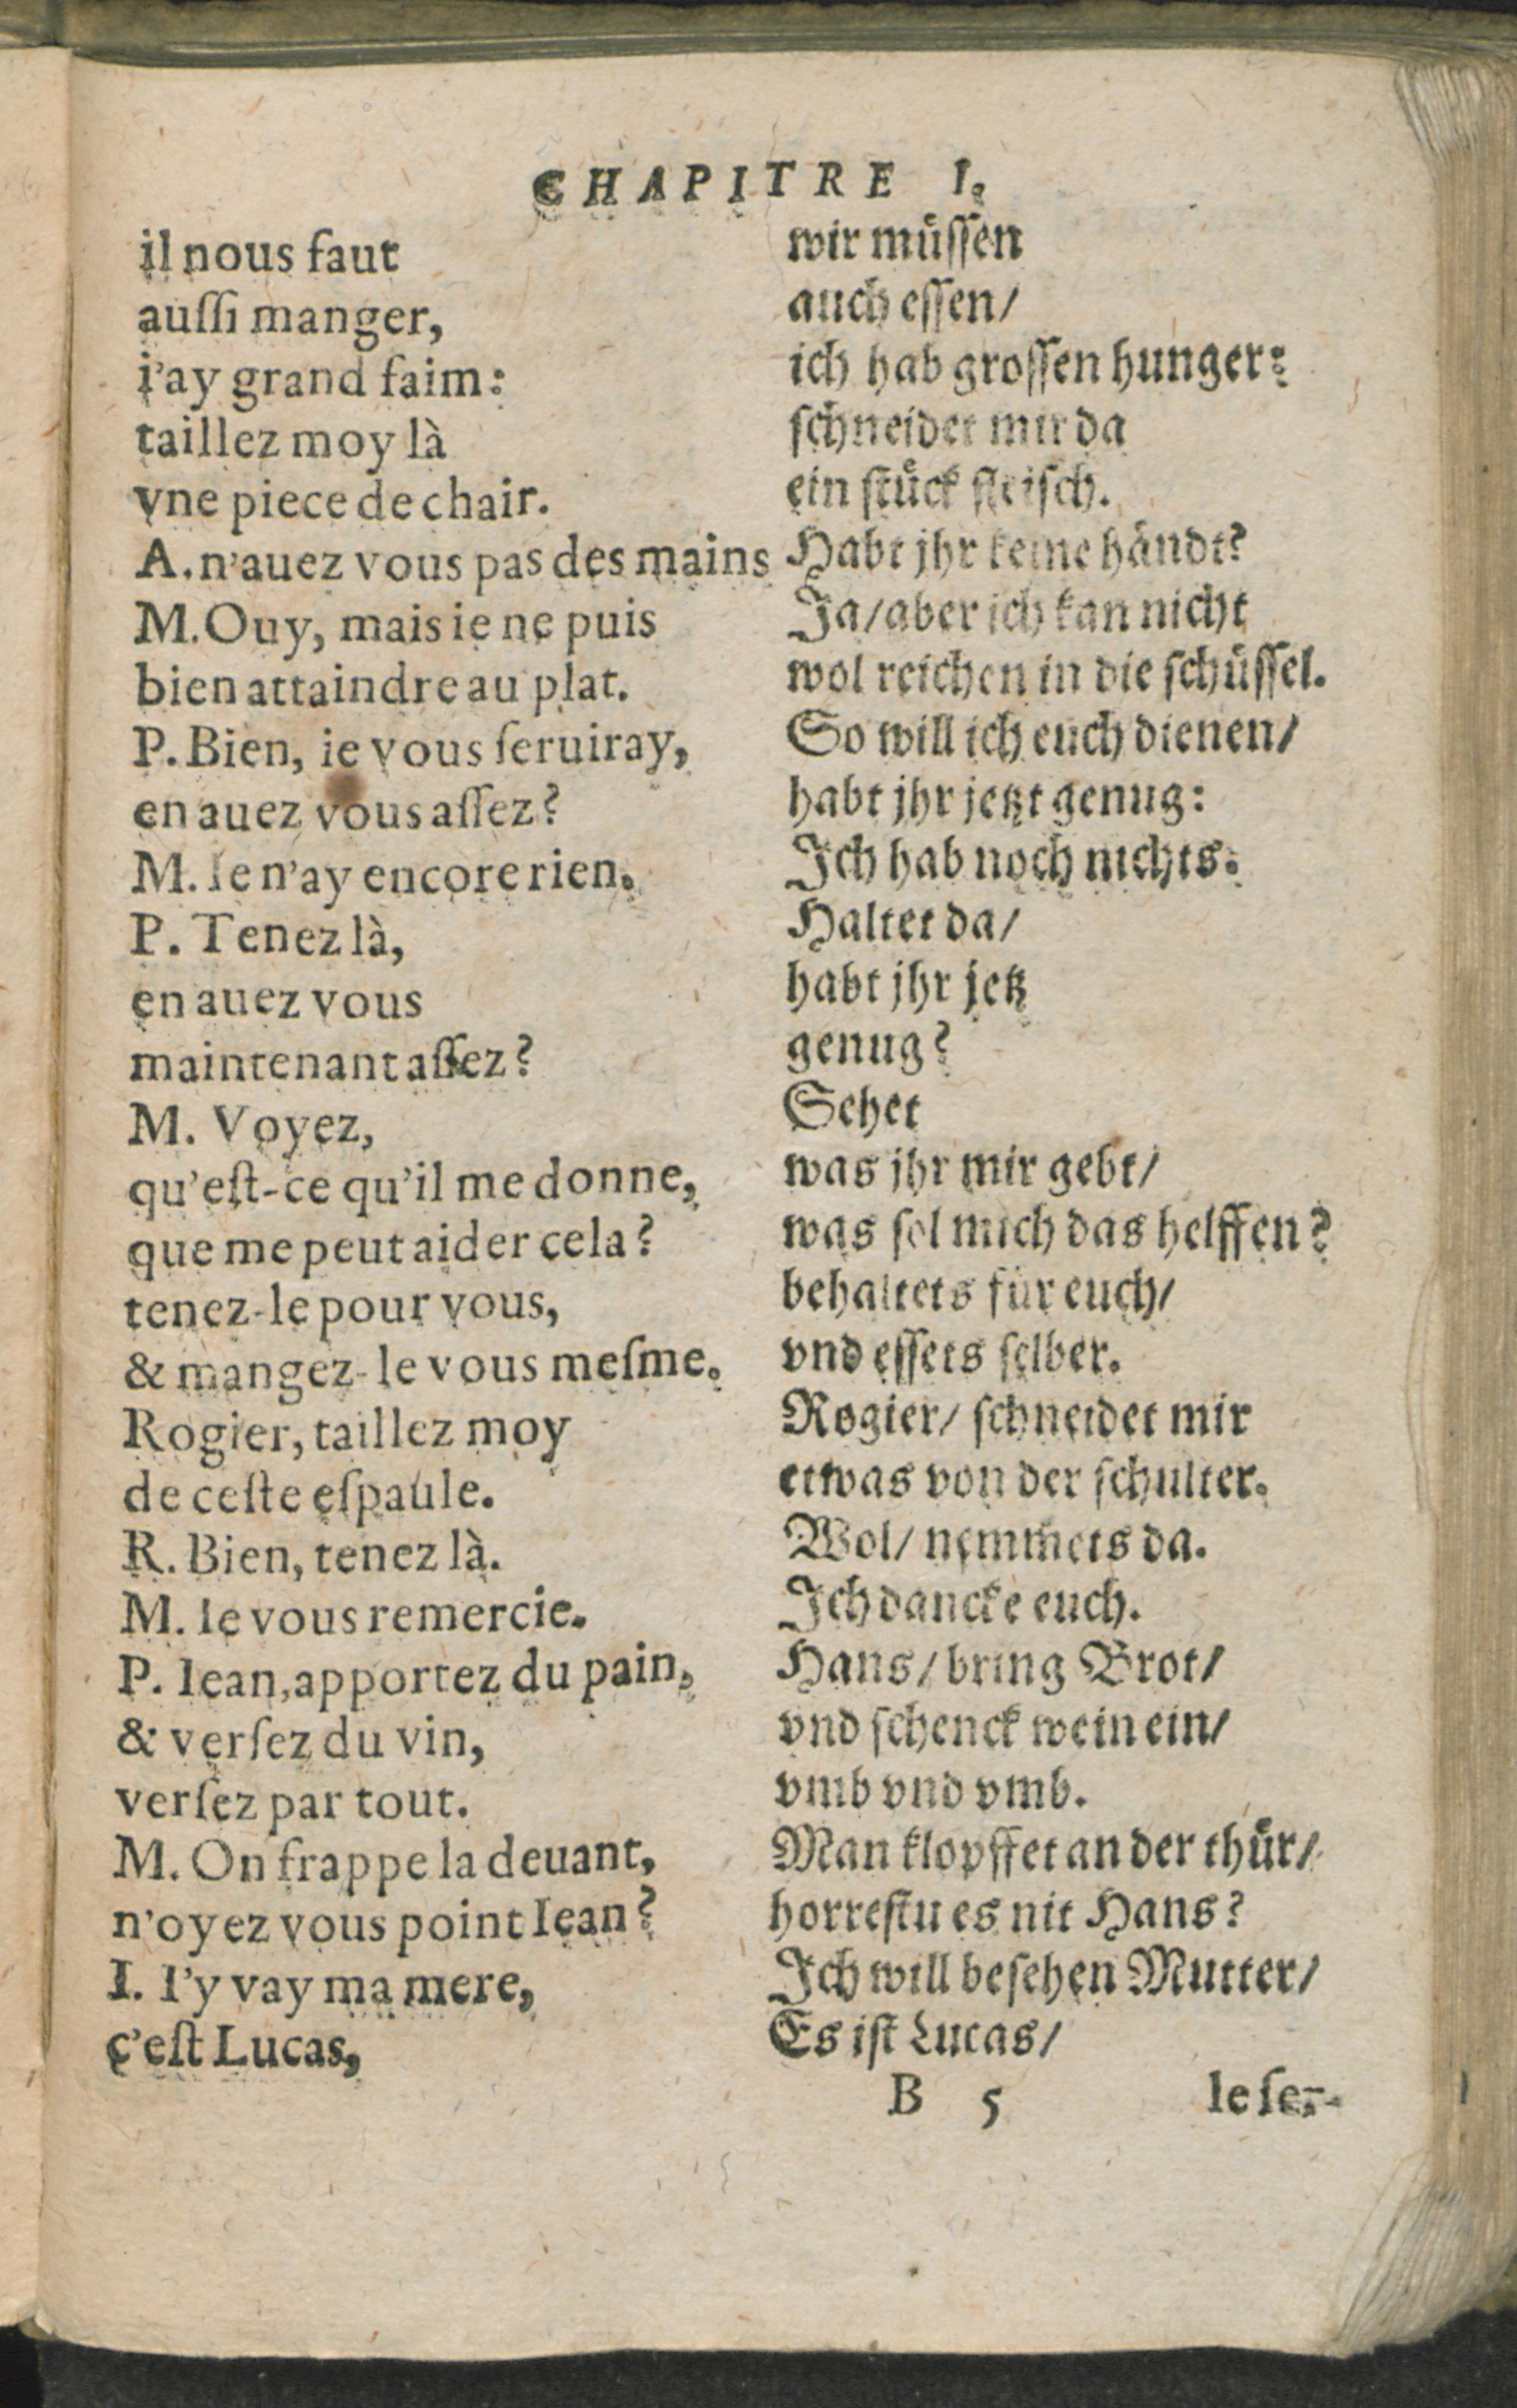 CHAPITRE I.
il nous faut
auſſi manger,
i'ay grand faim:
taillez moy là
vne piece de chair.
A. n'auez vous pas des mains
M. Ouy, mais ie ne puis
bien attaindre au plat.
P. Bien, ie vous ſeruiray,
en auez vous aſſez?
M. Ie n'ay encore rien.
P. Tenez là,
en auez vous
maintenant aſſez?
M. Voyez,
qu'eſt-ce qu'il me donne,
que me peut aider cela?
tenez-le pour vous,
& mangez-le vous meſme.
Rogier, taillez moy
de ceſte eſpaule.
R. Bien, tenez là.
M. Ie vous remercie.
P. Iean, apportez du pain,
& verſez du vin,
verſez par tout.
M. On frappe la deuant,
n'oyez vous point Iean?
I. I'y vay ma mere,
ç'eſt Lucas,
wir muͤſſen
auch eſſen/
ich hab groſſen hunger:
ſchneidet mir da
ein ſtuͤck fleiſch.
Habt jhr keine haͤndt?
Ja/aber ich kan nicht
wol reichen in die ſchuͤſſel.
So will ich euch dienen/
habt jhr jetzt genug:
Ich hab noch nichts.
Haltet da/
habt jhr jetz
genug?
Sehet
was jhr mir gebt/
was ſol mich das helffen?
behaltets fuͤr euch/
vnd eſſets ſelber.
Rogier/ ſchneidet mir
etwas von der ſchulter.
Wol/ nemmets da.
Ich dancke euch.
Hans/ bring Brot/
vnd ſchenck wein ein/
vmb vnd vmb.
Man klopffet an der thuͤr/
horreſtu es nit Hans?
Ich will beſehen Mutter/
Es iſt Lucas/
B 5 le ſer-